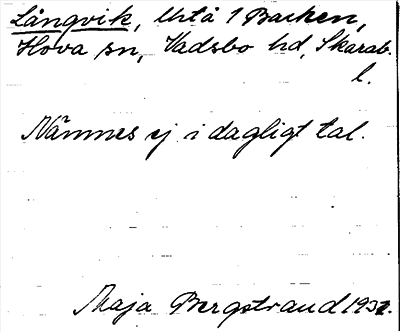 Långvik, Utå 1 Backen,
Hova sn, Vadsbo hd, Skarab.
l.
Nämnes ej i dagligt tal.
Maja Bergstrand 1932.